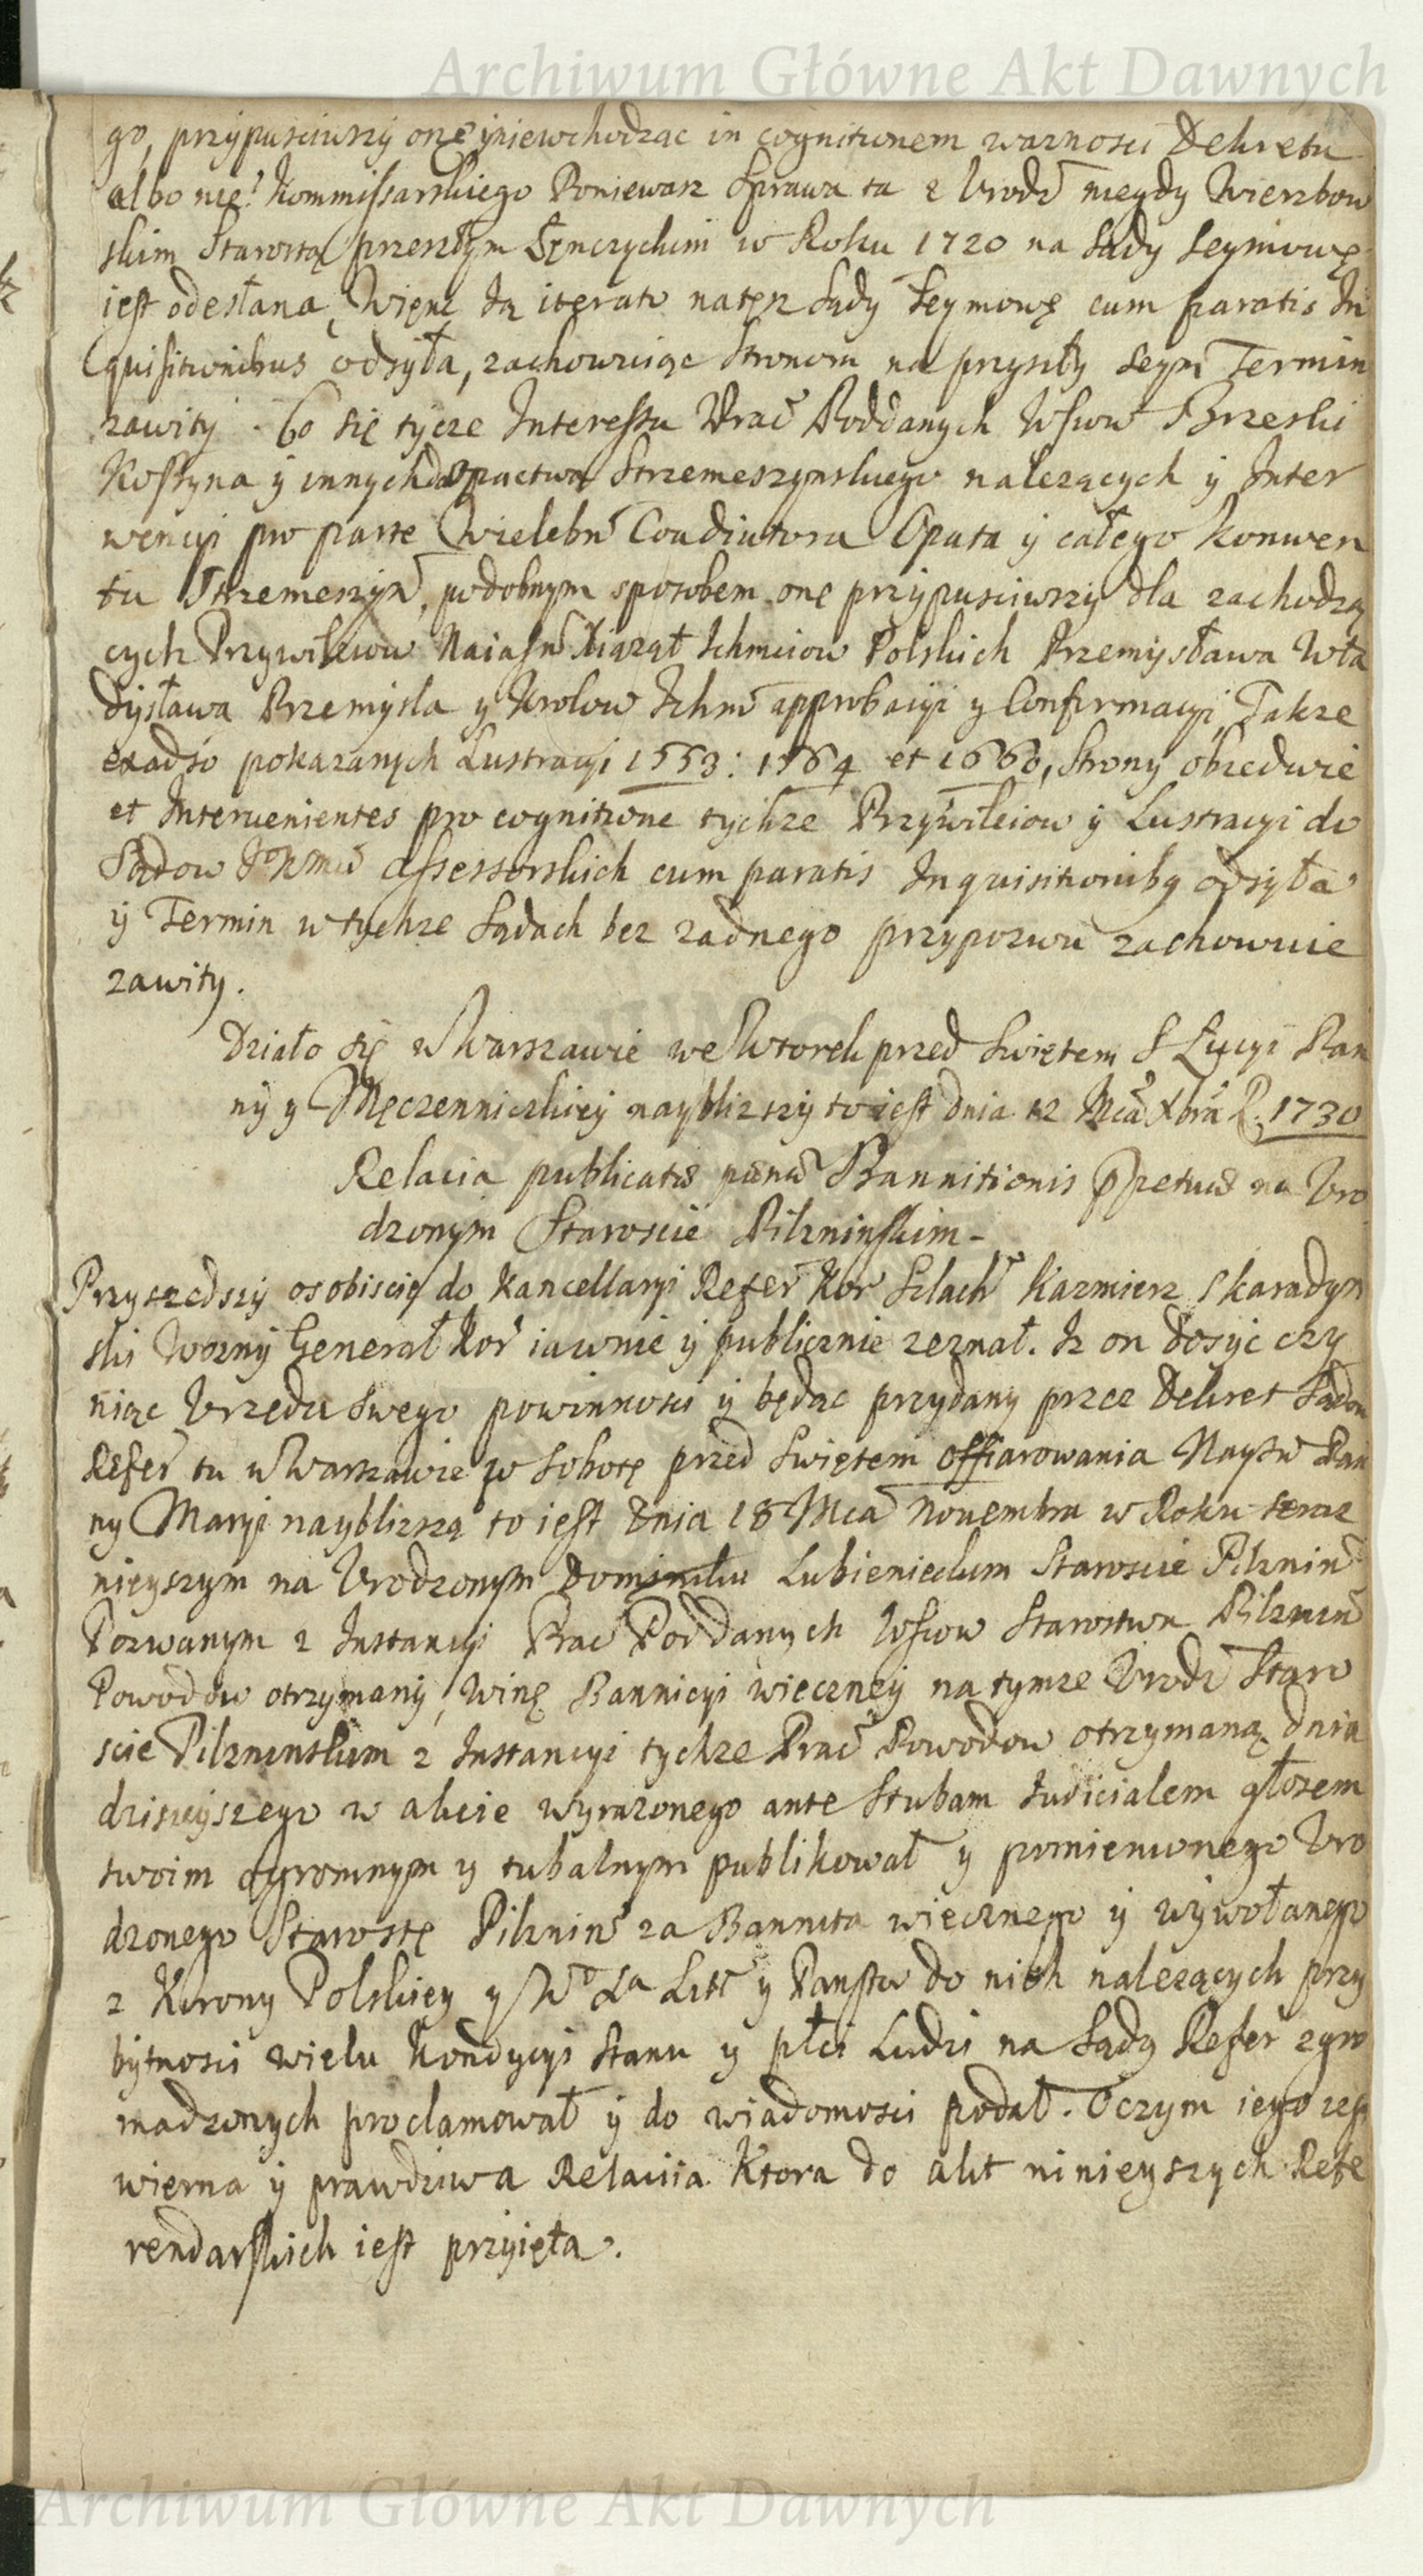 Archiwum Główne Akt Dawnych
go, przypusciwszy onę yniewchodząc in cognitionem waznosci Dekretu
albo nie? Kommissarskiego Poniewasz Sprawa ta z Urodź niegdy Wierzbow
skim Starostą przeszłym Łęnczyckim w Roku 1720 na Sądy Seymowę
iest odesłana, Więnc Ją iterato natęsz Sądy Seymowę cum paratis In
quisitionibus odsyła, zachowuiąc Stronom na przyszły Seym Termin
zawity. Co się tycze Interessu Prać Poddanych Wsiow Brzeski
Kostyna y innych do Opactwa Strzemeszynskiego nalezących y Inter
wencyi pro parte Wielebń Coadiutora Opata y całego Konwen
tu Strzemeszyń, podobnym sposobem onę przypusciwszy dla zachodzą
cych Przywilewow Naiasń Xiąząt Ichmciow Polskich Przemysława Wła
dysława Przemysla y Krolow Ichm approbacyi y Confirmacyi, Takze
exadso pokazanych Lustracyi 1553: 1564 et 1660, Strony obiedwie
et Interuenientes pro cognitione tychze Przywileiow y Lustracyi do
Sądow Assessorskich cum paratis Inquisitionibq odsyła
y Termin w tychze Sądach bez zadnego przypozwu zachowuie
zawity.
Działo się w Warszawie we Wtorek przed Swiętem S Łucyi Pan
ny y Męczenniczkiey nayblizszy to iest dnia 12 Mca Xbra R. 1730
Relacia publicatæ pænæ Bannitionis Ppetuæ na Uro
dzonym Staroscie Pilzninskim -
Przyszedszy osobiscię do Kancellaryi Refer Kor Szlach Kazmierz Skaradyn
ski Wozny Generał Kor iawnie y publicznie zeznał. Iz on dosyc czy
niąc Urzędu swego powinnosci y będąc przydany przez Dekret Sądow
Refer tu w Warszawie w Sobotę przed Swiętem Offiarowania Nayśw Pan
ny Maryi nayblizszą to iest Dnia 18 Mca Nouembra w Roku teraz
nieyszym na Urodzonym Dominiku Lubienieckim Staroscie Pilznin
Pozwanym z Instancyi Prac Poddanych Wsiow Starostwa Pilznin
Powodow otrzymany, Winę Bannicyi wieczney na tymze Urodz Staro
scie Pilzninskim z Instancyi tychze Prac Powodow otrzymaną dnia
dzisieyszego w akcie wyrazonego ante Stubam Iudicialem głosem
swoim ogromnym y tubalnym publikował y pomienionego Uro
dzonego Starostę Pilznin za Bannita wiecznego y wywołanego
z Korony Polskiey y Wo Xa Litt y Panstw do nich nalezących przy
bytnosci wielu Kondycyi Stanu y płci Ludzi na Sądy Refer zgro
madzonych proclamował y do wiadomosci podał. O czym iego iest
wierna y prawdziwa Relaciia. Ktora do akt ninieyszych Refe
rendarskich iest przyięta.
Archiwum Główne Akt Dawnych